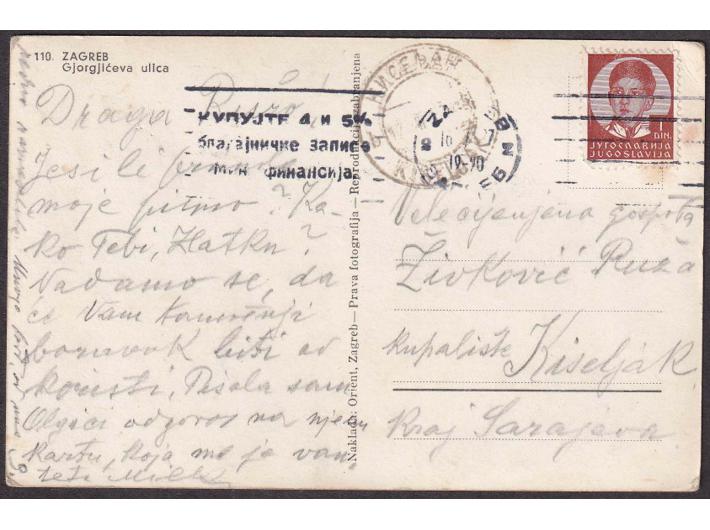 110. ZAGREB
Gjorgjićeva ulica
Draga Ružo,
КУПУЈТЕ 4 и 5%
благајничке записе
мин финансија
Jesi li primila
moje pismo? Ka-
ko Tebi, Zlatku?
Nadamo se, da
će Vam tamošnji
boravak biti od
koristi. Pisala sam
Olgici odgovor na njenu
kartu, koja me je van
teti
КИСЕЉАК
KISELJAK
Naklada: Orient, Zagreb — Prava fotografija — Reprodukcija zabranjena
1
DIN.
ЈУГОСЛАВИЈА
JUGOSLAVIJA
Velecijenjena gospođa
Živković Ruža
kupalište Kiseljak
kraj Sarajeva